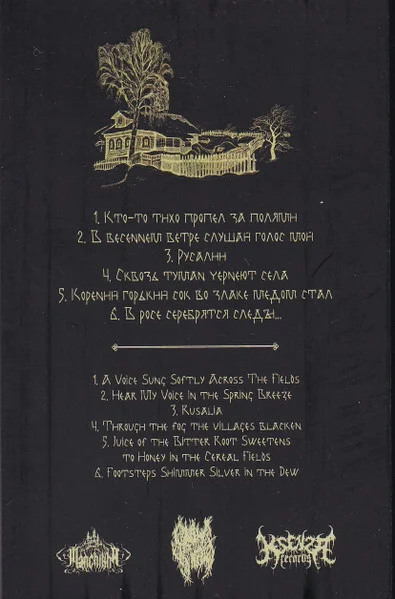 1. Кто-то тихо пропел за полями
2. В весеннем ветре слушай голос мой
3. Русалии
4. Сквозь туман чернеют села
5. Корений горький сок во злаке медом стал
6. В росе серебрятся следы...
1. A Voice Sung Softly Across The Fields
2. Hear My Voice in the Spring Breeze
3. Rusalia
4. Through the fog the villages blacken
5. Juice of the Bitter Root Sweetens
to Honey in the Cereal Fields
6. Footsteps Shimmer Silver in the Dew
Ksenza
records